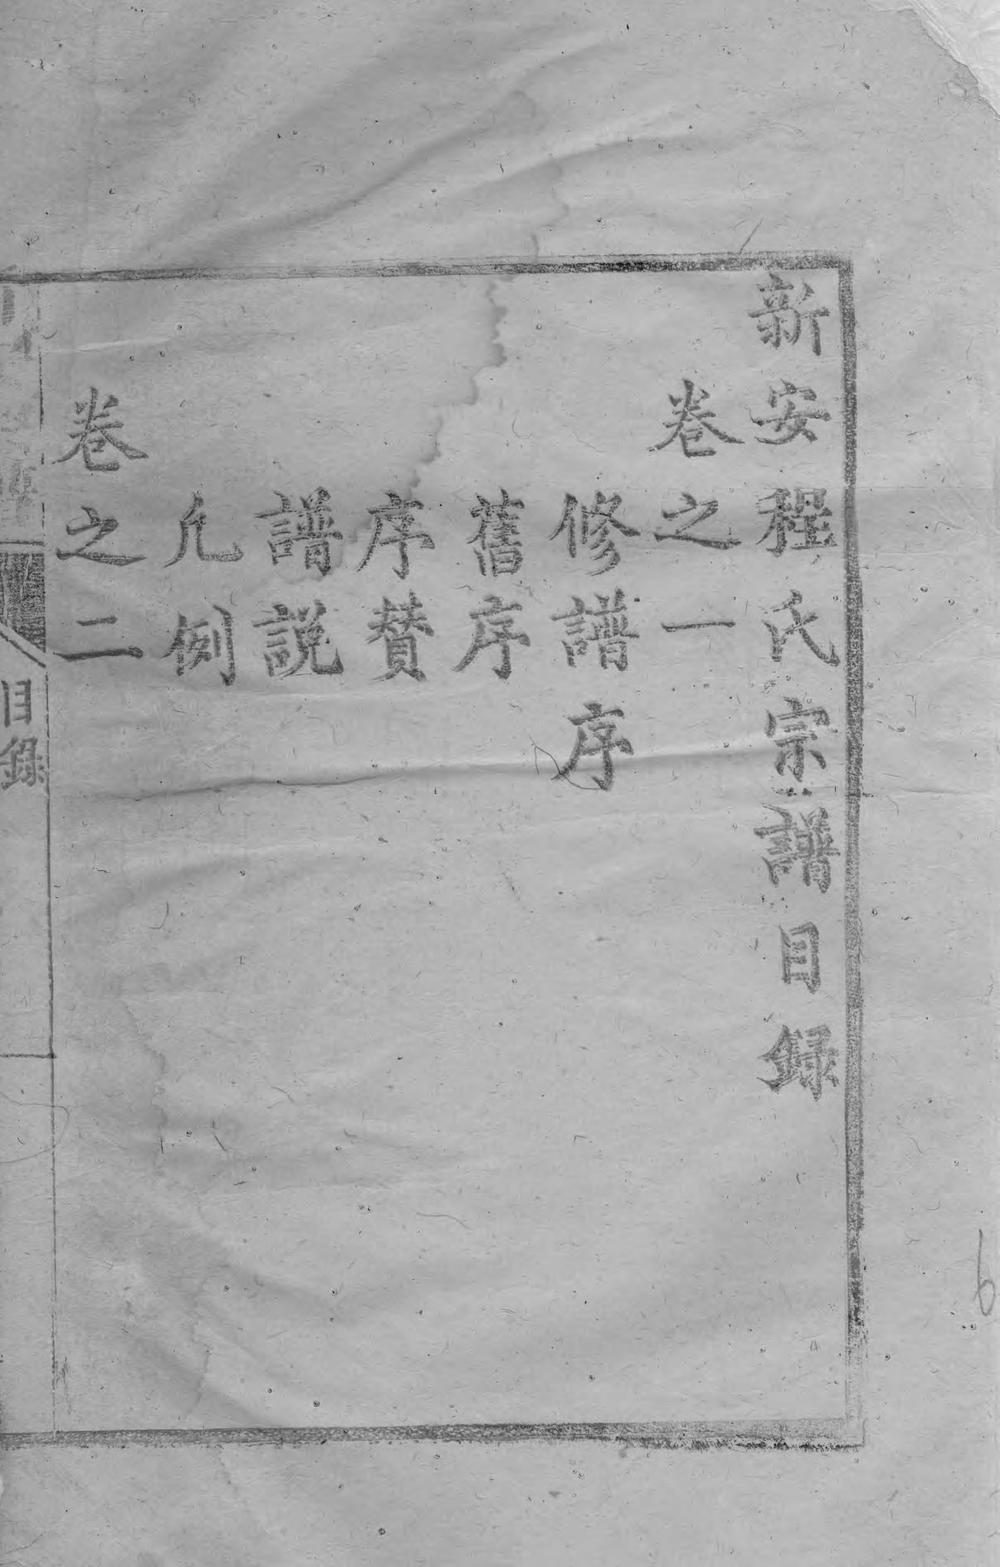 新安程氏宗譜目録
卷之一
修譜序
舊序
序賛
譜説
凢例
卷之二
目錄